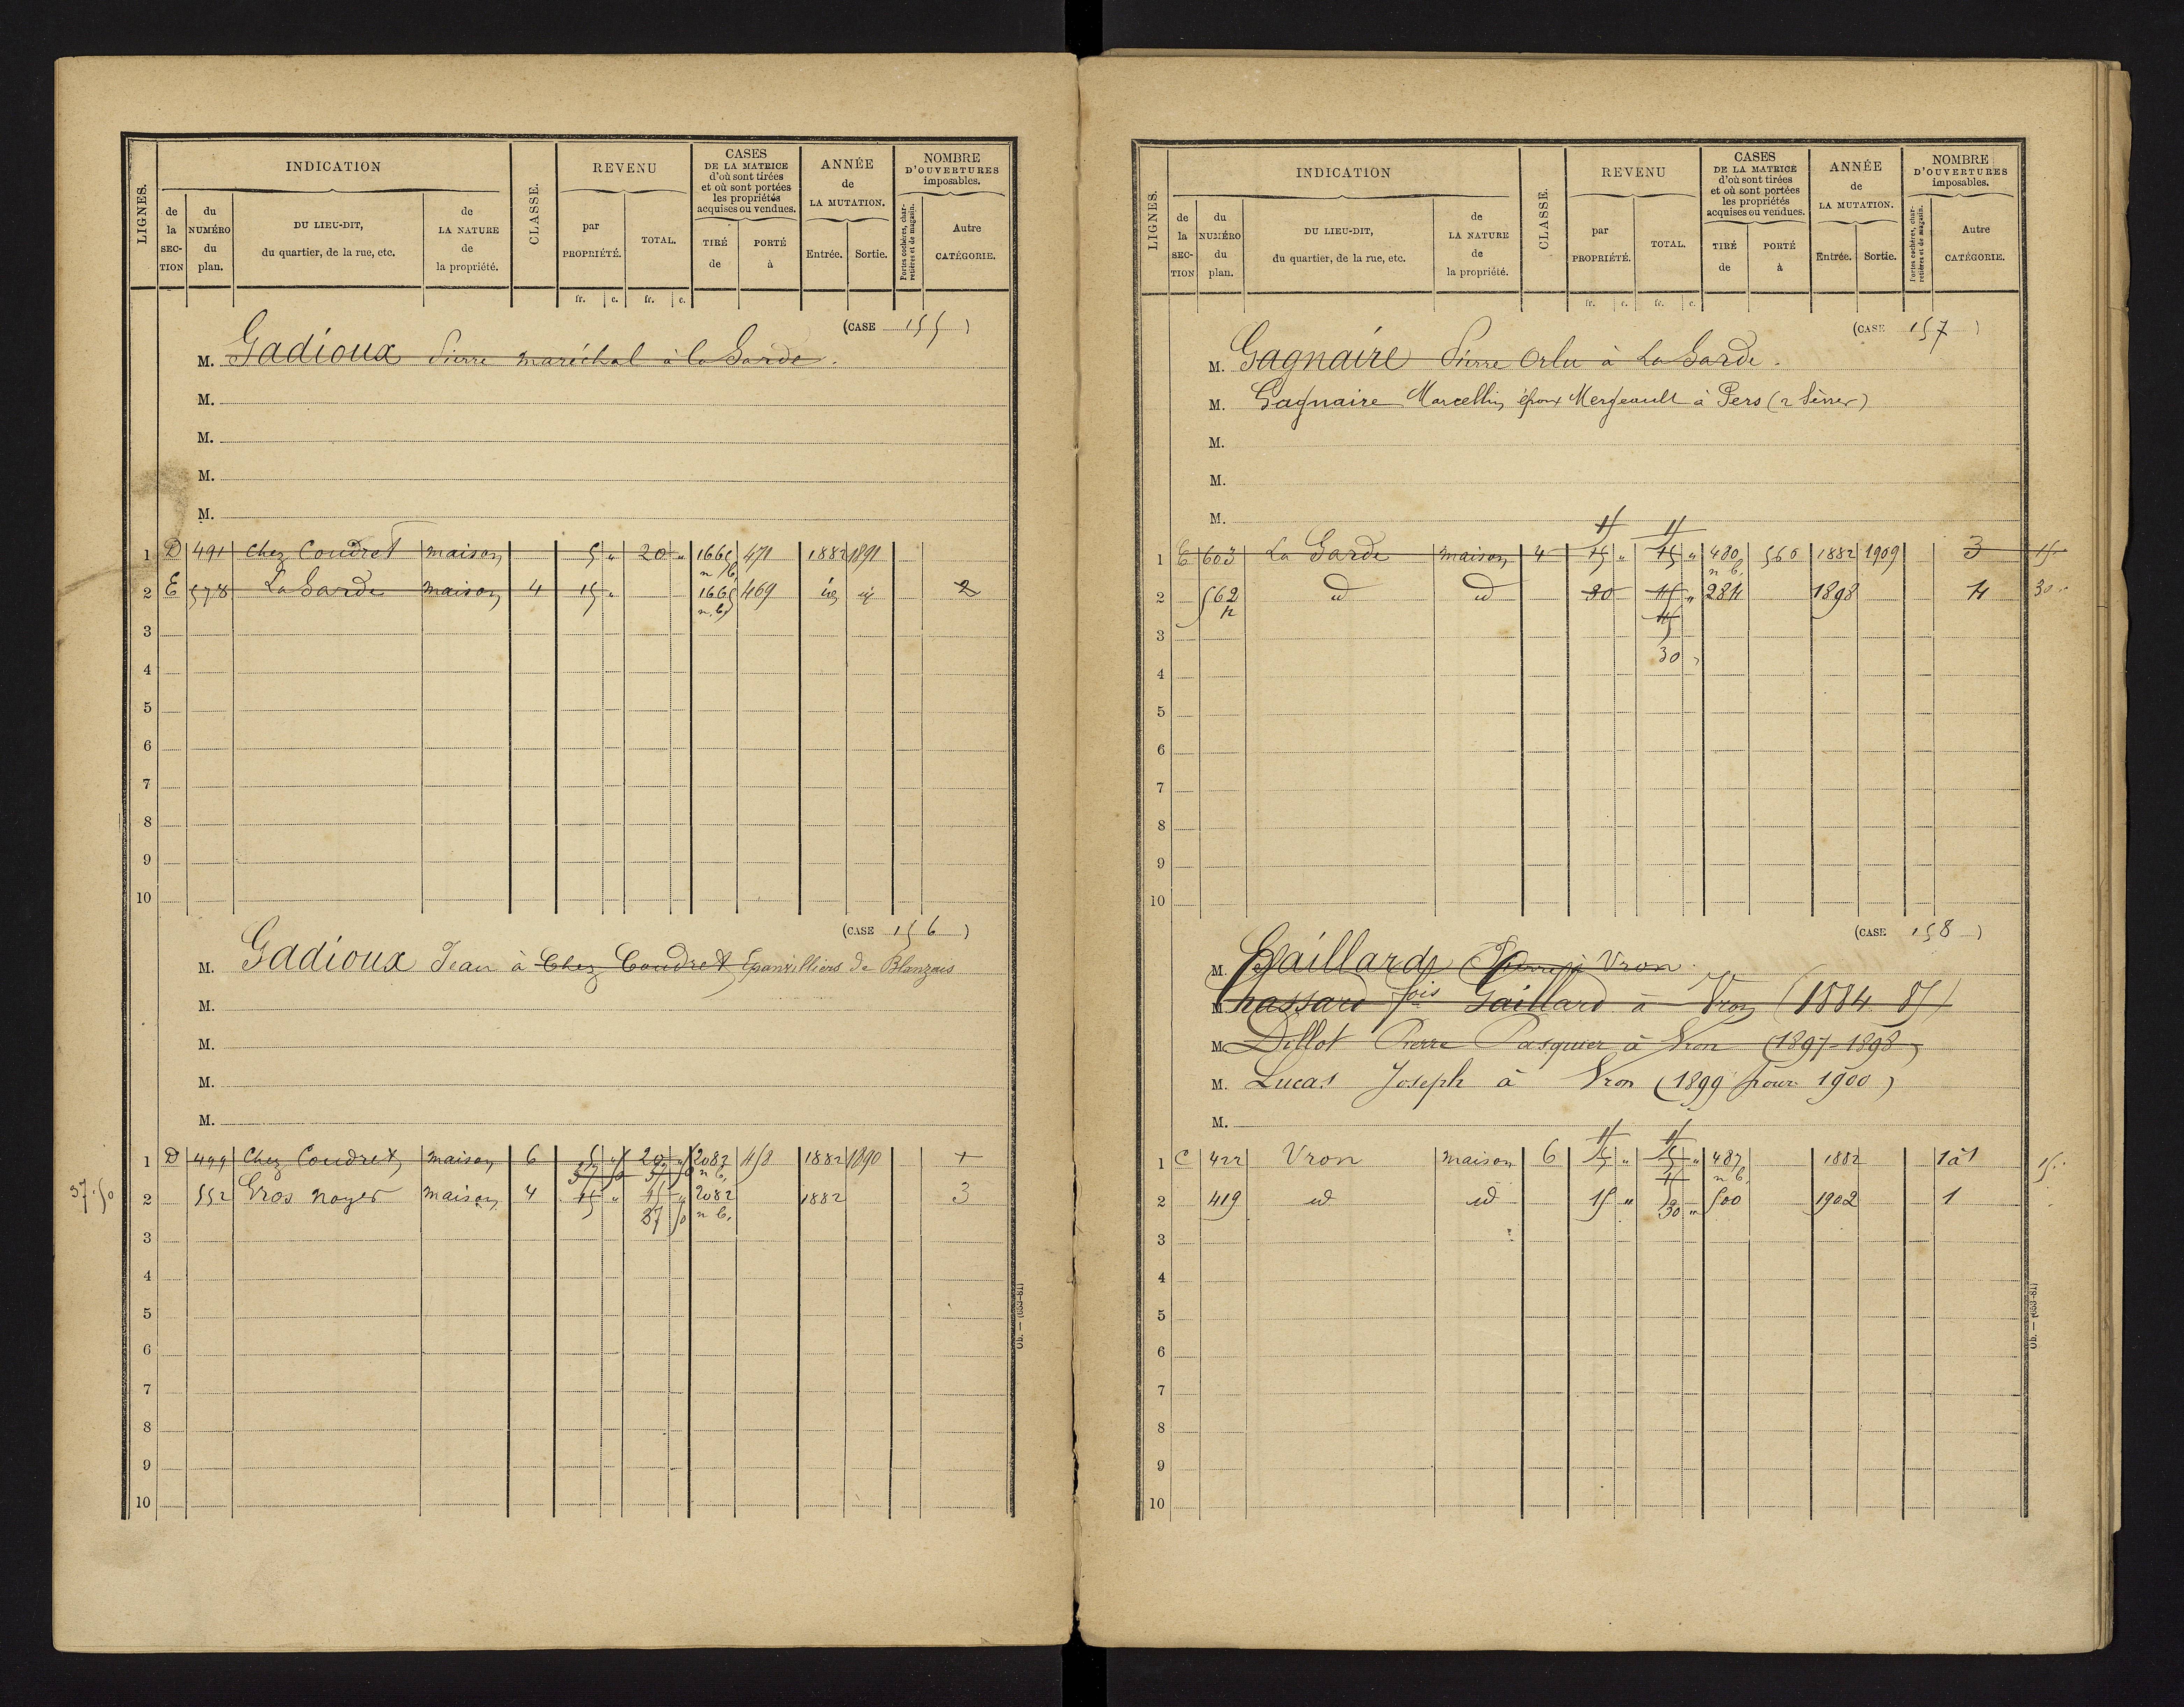 LIGNES.
INDICATION
de la SECTION
du NUMÉRO du plan.
DU LIEU-DIT, du quartier, de la rue, etc.
de LA NATURE de la propriété.
CLASSE.
REVENU
par PROPRIÉTÉ.
TOTAL.
fr. c. fr. c.
CASES DE LA MATRICE d'où sont tirées et où sont portées les propriétés acquises ou vendues.
TIRÉ de
PORTÉ à
ANNÉE de LA MUTATION.
Entrée. Sortie.
NOMBRE D'OUVERTURES imposables.
Portes cochères, charretières et de magasin.
Autre CATÉGORIE.
(CASE 155)
M. Gadioux Pierre maréchal à la Garde.
M.
M.
M.
M.
1 D 491 Chez Coudret maison 5 " 20 " 1665 n.b. 471 1882 1891
2 E 578 La Garde maison 4 15 " 1665 n.b. 469 2
3
4
5
6
7
8
9
10
(CASE 156)
M. Gadioux Jean à Chez Coudret Epanvilliers de Blanzais
M.
M.
M.
M.
1 D 499 Chez Coudret maison 6 5 " 20 " 2082 n b. 458 1882 1890 1
37 50 37 50
37.50 2 552 Gros noyer maison 4 15 " 15 " 2082 n b. 1882 3
37 50
3
4
5
6
7
8
9
10
Ob. — (653-81)
LIGNES.
INDICATION
de la SECTION
du NUMÉRO du plan.
DU LIEU-DIT, du quartier, de la rue, etc.
de LA NATURE de la propriété.
CLASSE.
REVENU
par PROPRIÉTÉ.
TOTAL.
fr. c. fr. c.
CASES DE LA MATRICE d'où sont tirées et où sont portées les propriétés acquises ou vendues.
TIRÉ de
PORTÉ à
ANNÉE de LA MUTATION.
Entrée. Sortie.
NOMBRE D'OUVERTURES imposables.
Portes cochères, charretières et de magasin.
Autre CATÉGORIE.
(CASE 157)
M. Gagnaire Pierre Orlu à La Garde.
M. Gagnaire Marcellin, époux Mergeault à Pers (2 Sèvres)
M.
M.
M.
1 E 603 La Garde maison 4 15 " 15 " 480 n b. 560 1882 1909 3 15
2 562 p id id 30 45 " 284 1898 4 30
45
3
30
4
5
6
7
8
9
10
(CASE 158)
M. Gaillard Pierre à Vron.
M. Chassard fois Gaillard à Vron (1884 85)
M. Dillot Pierre Pasquier à Vron (1897-1898)
M. Lucas Joseph à Vron (1899 pour 1900)
M.
1 C 422 Vron maison 6 15 " 15 " 487 n b. 1882 1à1 15
2 419 id id 15 " 30 " 500 1902 1
3
4
5
6
7
8
9
10
Ob. — (653-81)